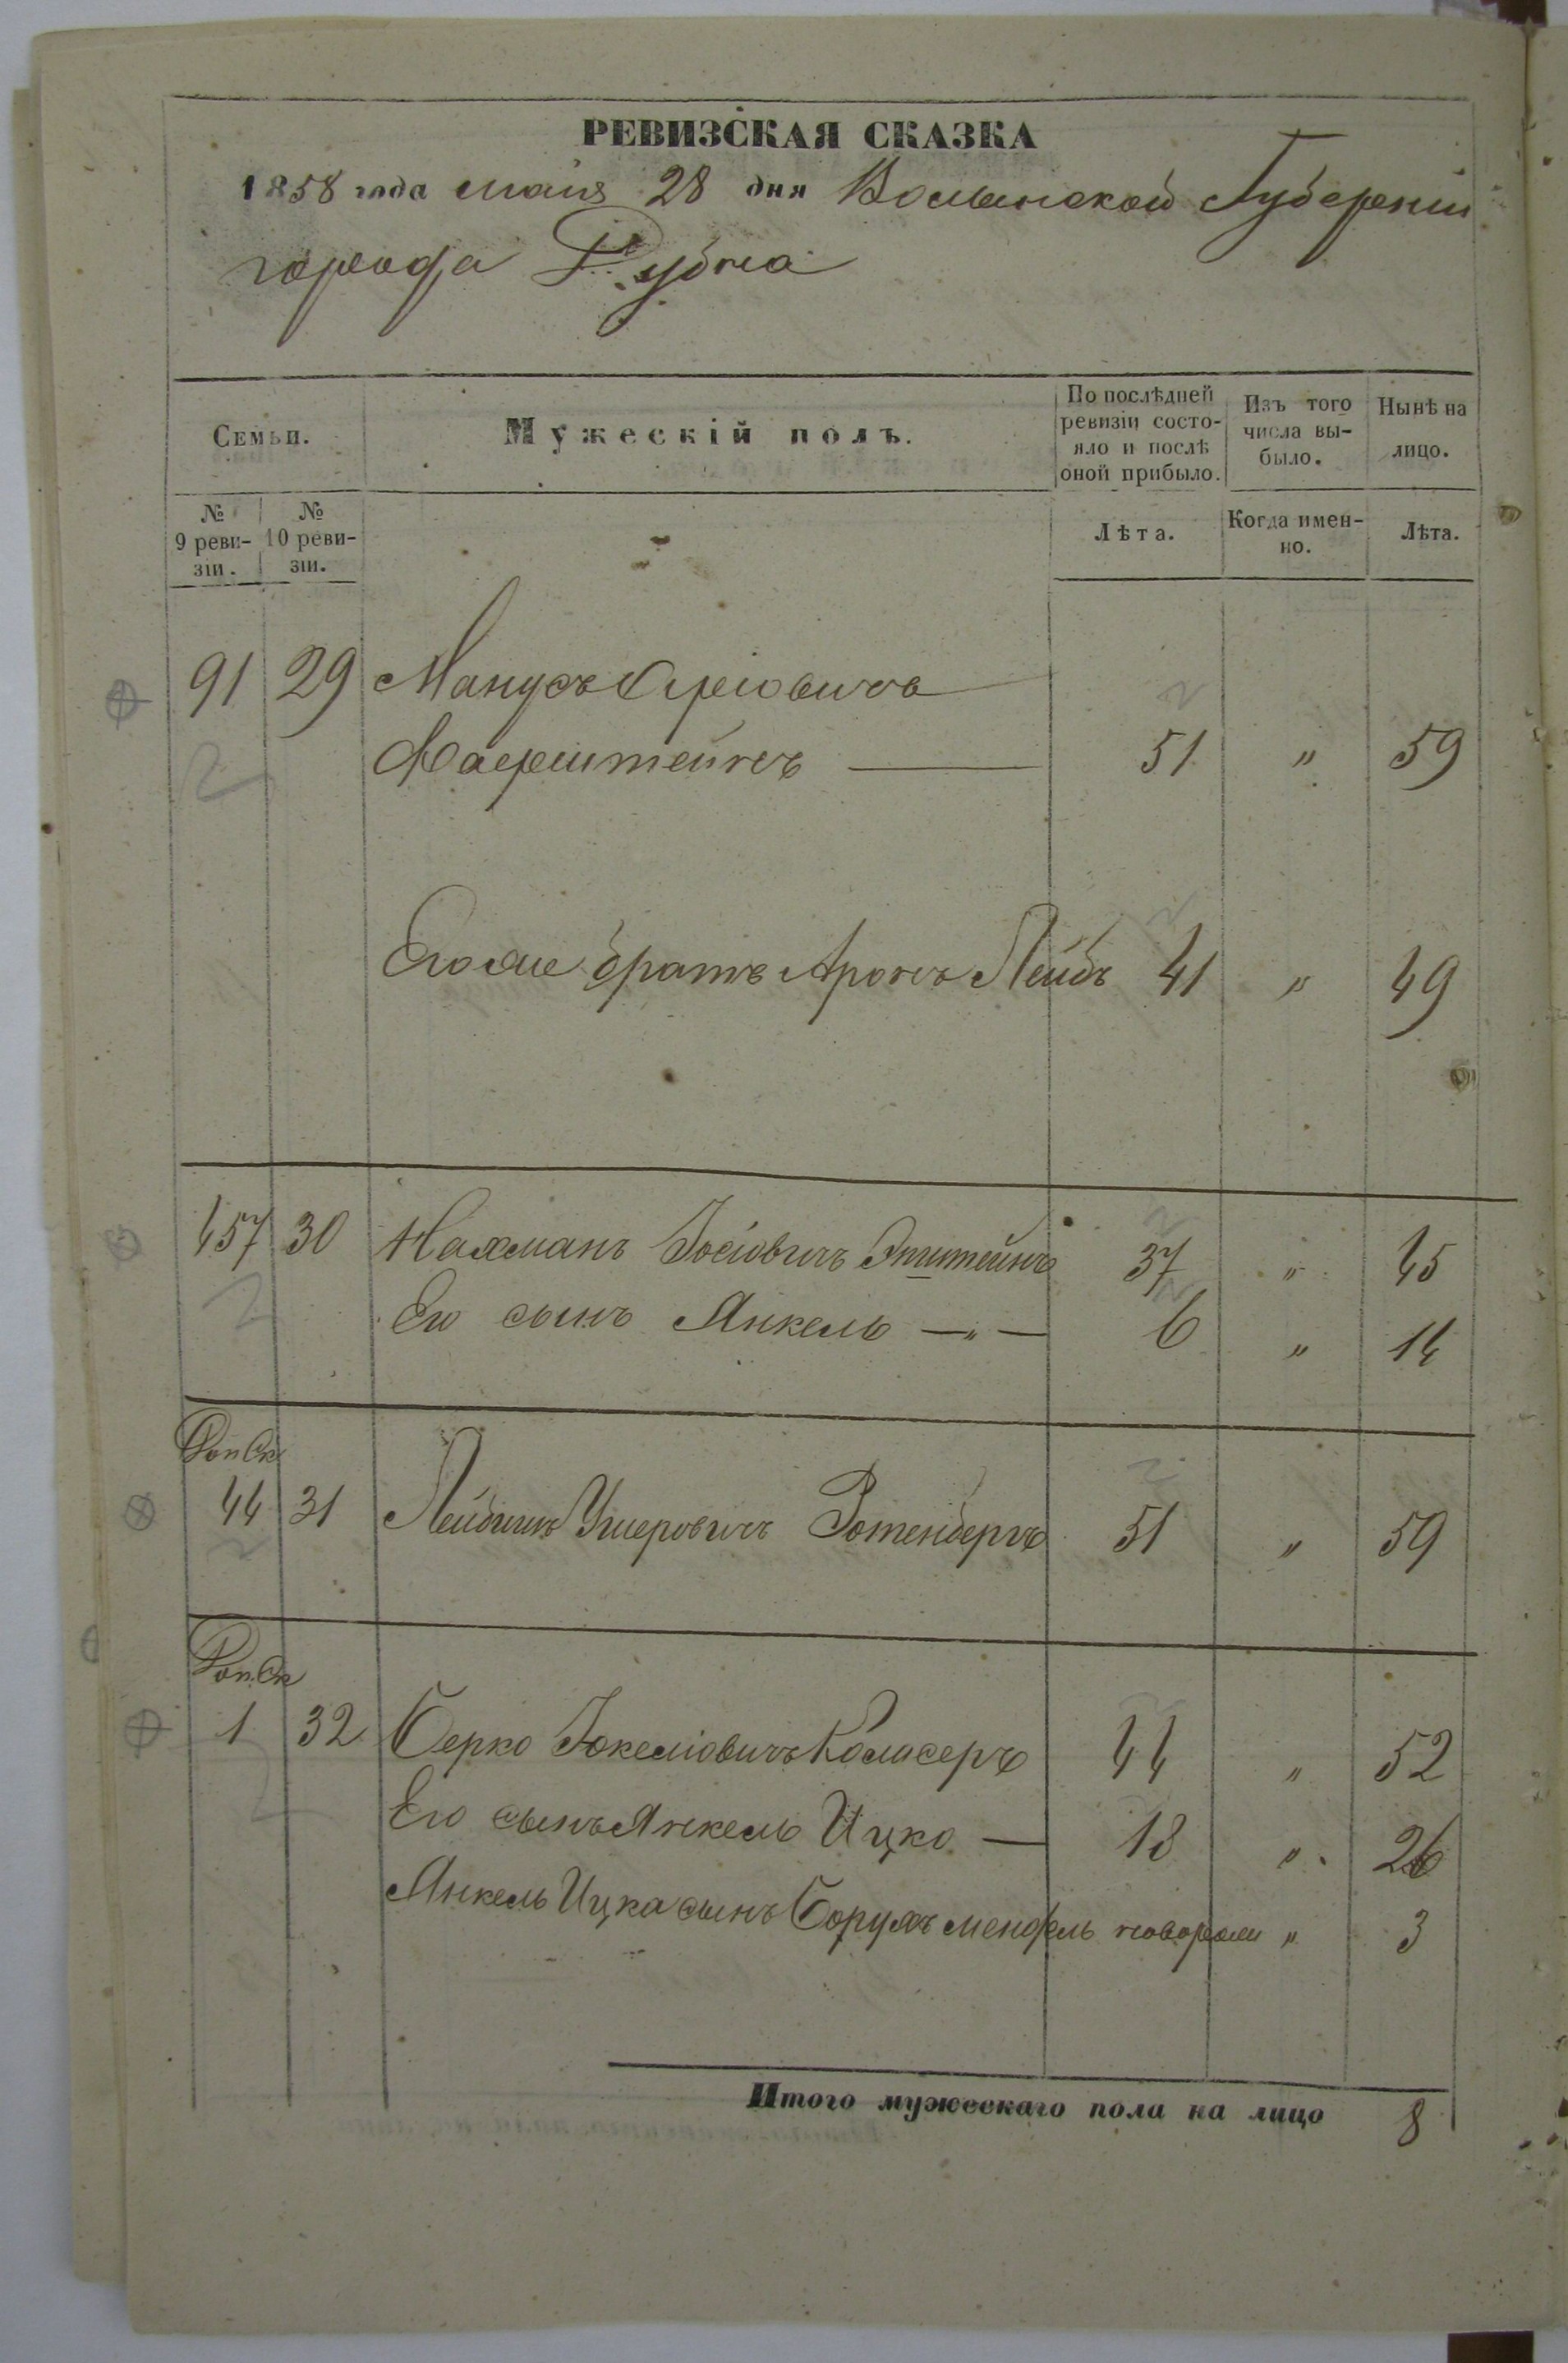 РЕВИЗСКАЯ СКАЗКА
1858 года маія 28 дня Волынской Губерніи
города Дубна
Семьи.
Мужескій полъ.
По послѣдней ревизіи состояло и послѣ оной прибыло.
Изъ того числа выбыло.
Нынѣ на лицо.
№ 9 ревизіи.
№ 10 ревизіи.
Лѣта.
Когда именно.
Лѣта.
91 29 Манусъ
51 " 59
Его же братъ Аронъ Лейбъ 41 " 49
457 30 Нахманъ Іосіовичъ Эпштейнъ 37 " 45
Его сынъ Янкель —"— 6 " 14
Доп Ск
44 31 Лейбишъ Ушеровичъ Ротенбергъ 51 " 59
Доп. Ск
1 32 Берко Іокеліовичъ 44 " 52
Его сынъ Янкель Ицко — 18 " 26
Янкель Ицка сынъ Борухъ мендель новорожн " 3
Итого мужескаго пола на лицо 8